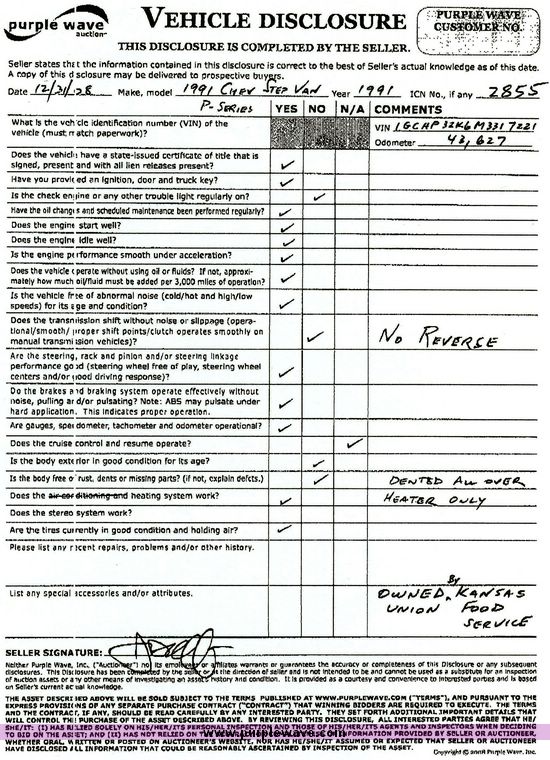 purple wave
auction
VEHICLE DISCLOSURE
THIS DISCLOSURE IS COMPLETED BY THE SELLER.
PURPLE WAVE
CUSTOMER NO.
Seller states that the information contained in this disclosure is correct to the best of Seller's actual knowledge as of this date.
A copy of this disclosure may be delivered to prospective buyers.
Date 12/21/28 Make, model 1991 CHEV STEP VAN Year 1991 ICN No., if any 2855
P-SERIES YES NO N/A COMMENTS
What is the vehicle identification number (VIN) of the
vehicle (must match paperwork)?
VIN 1GCAP32K6M3317221
Odometer 43,627
Does the vehicle have a state-issued certificate of title that is
signed, present and with all lien releases present? ✓
Have you provided an ignition, door and truck key? ✓
Is the check engine or any other trouble light regularly on? ✓
Have the oil changes and scheduled maintenance been performed regularly? ✓
Does the engine start well? ✓
Does the engine idle well? ✓
Is the engine performance smooth under acceleration? ✓
Does the vehicle operate without using oil or fluids? If not, approxi-
mately how much oil/fluid must be added per 3,000 miles of operation? ✓
Is the vehicle free of abnormal noise (cold/hot and high/low
speeds) for its age and condition? ✓
Does the transmission shift without noise or slippage (opera-
tional/smooth/proper shift points/clutch operates smoothly on
manual transmission vehicles)? ✓ NO REVERSE
Are the steering, rack and pinion and/or steering linkage
performance good (steering wheel free of play, steering wheel
centers and/or good driving response)? ✓
Do the brakes and braking system operate effectively without
noise, pulling and/or pulsating? Note: ABS may pulsate under
hard application. This indicates proper operation. ✓
Are gauges, speedometer, tachometer and odometer operational? ✓
Does the cruise control and resume operate? ✓
Is the body exterior in good condition for its age? ✓
Is the body free of rust, dents or missing parts? (if not, explain defcts.) ✓ DENTED ALL OVER
Does the air conditioning and heating system work? ✓ HEATER ONLY
Does the stereo system work?
Are the tires currently in good condition and holding air? ✓
Please list any recent repairs, problems and/or other history.
List any special accessories and/or attributes.
By
OWNED, KANSAS
UNION FOOD
SERVICE
SELLER SIGNATURE:
Neither Purple Wave, Inc. ("Auctioneer") nor its employees or affiliates warrants or guarantees the accuracy or completeness of this Disclosure or any subsequent
disclosures. This Disclosure has been completed by the seller or at the direction of seller and is not intended to be and cannot be used as a substitute for an inspection
of Auction assets or any other means of investigating an Asset's history and condition. It is provided as a courtesy and convenience to interested parties and is based
on Seller's current actual knowledge.
THE ASSET DESCRIBED ABOVE WILL BE SOLD SUBJECT TO THE TERMS PUBLISHED AT WWW.PURPLEWAVE.COM ("TERMS"), AND PURSUANT TO THE
EXPRESS PROVISIONS OF ANY SEPARATE PURCHASE CONTRACT ("CONTRACT") THAT WINNING BIDDERS ARE REQUIRED TO EXECUTE. THE TERMS
AND THE CONTRACT, IF ANY, SHOULD BE READ CAREFULLY BY ANY INTERESTED PARTY. THEY SET FORTH ADDITIONAL IMPORTANT DETAILS THAT
WILL CONTROL THE PURCHASE OF THE ASSET DESCRIBED ABOVE. BY REVIEWING THIS DISCLOSURE, ALL INTERESTED PARTIES AGREE THAT HE/
SHE/IT: (I) HAS RELIED SOLELY ON HIS/HER/ITS PERSONAL INSPECTION AND THOSE OF HIS/HER/ITS AGENTS AND INSPECTORS WHEN DECIDING
TO BID ON THE ASSET; AND (II) HAS NOT RELIED ON INFORMATION PROVIDED BY SELLER OR AUCTIONEER,
www.purplewave.com
WHETHER ORAL, WRITTEN OR POSTED ON AUCTIONEER'S WEBSITE, NOR HAS HE/SHE/IT ASSUMED OR EXPECTED THAT SELLER OR AUCTIONEER
HAVE DISCLOSED ALL INFORMATION THAT COULD BE REASONABLY ASCERTAINED BY INSPECTION OF THE ASSET.
Copyright © 2008 Purple Wave, Inc.